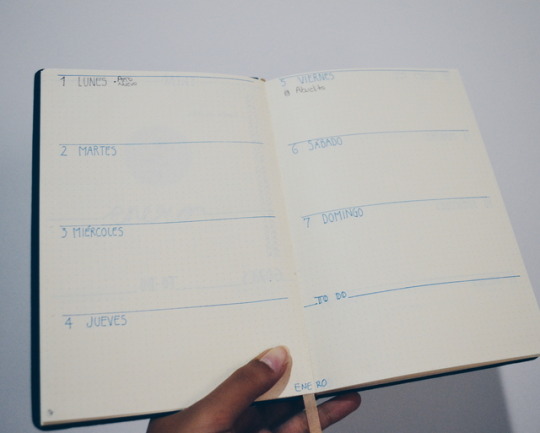 1 LUNES - Año
Nuevo
2 MARTES
3 MIÉRCOLES
4 JUEVES
5 VIERNES
Abuelita
6 SÁBADO
7 DOMINGO
TO DO
ENERO